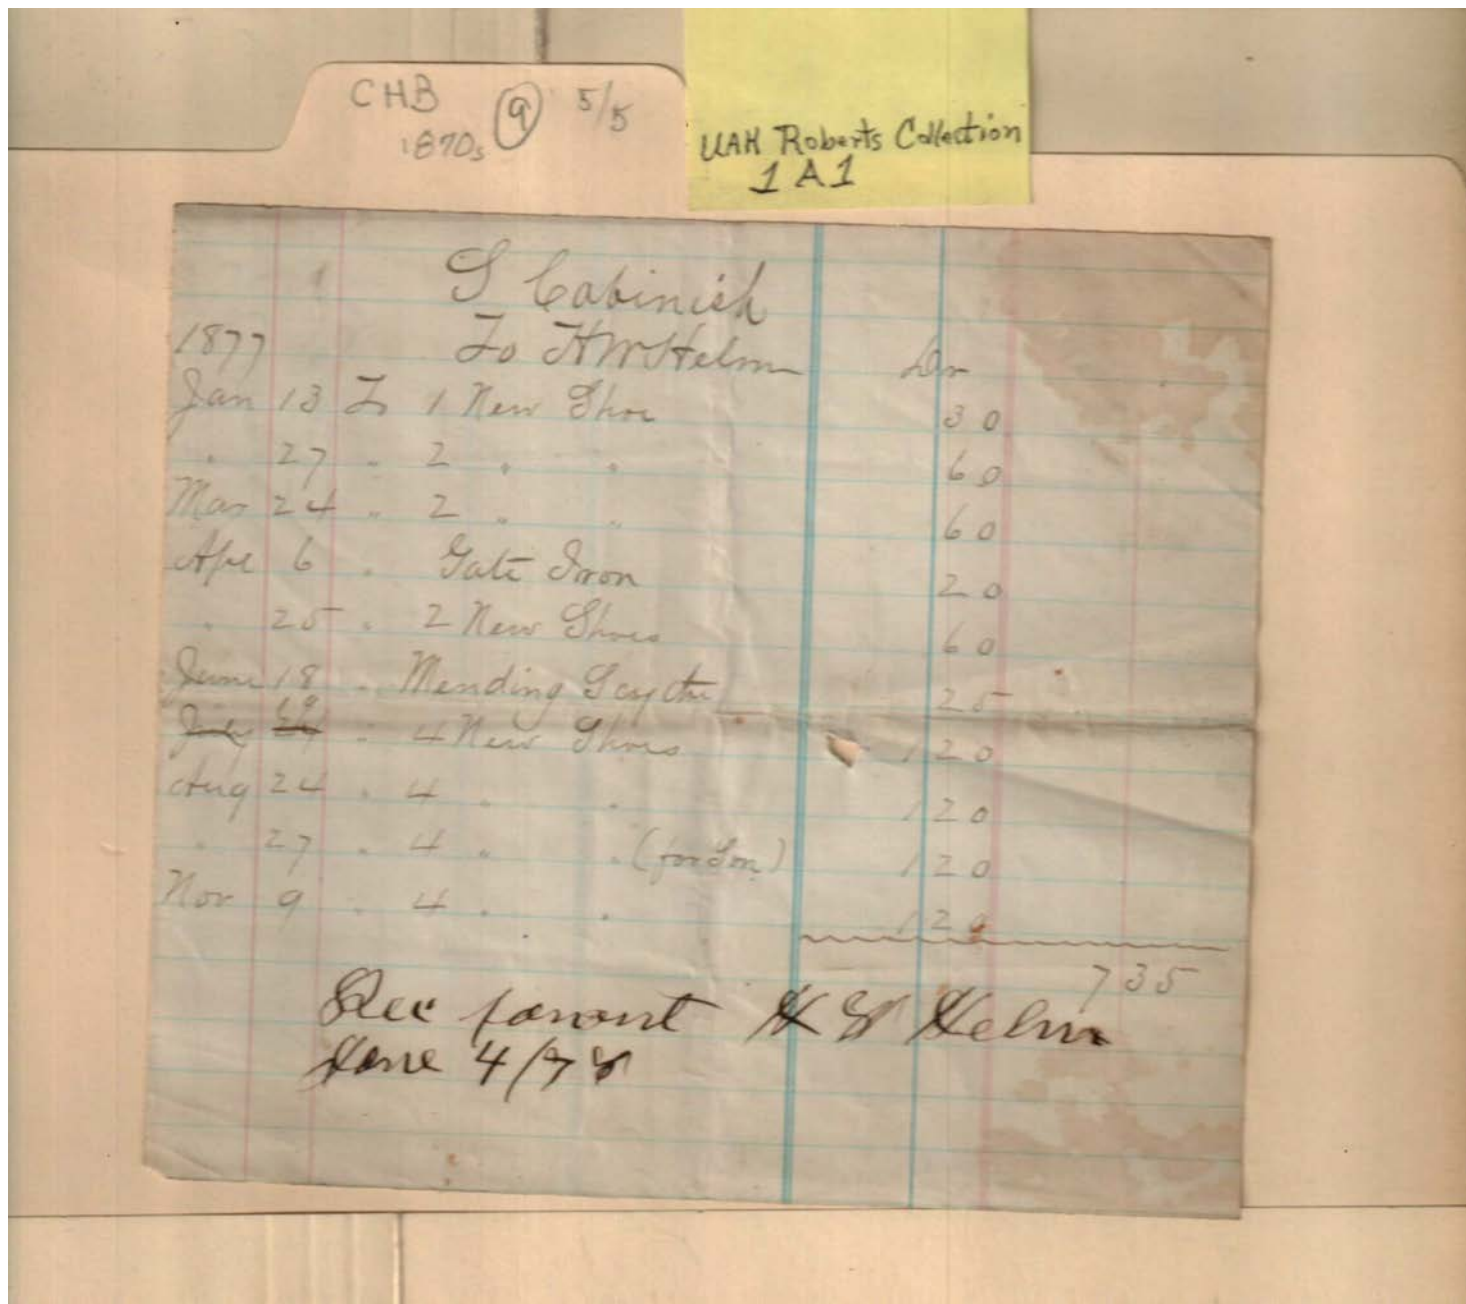 CHB 9 5/5
1870s
UAH Roberts Collection
1A1
S Cabinish
1877 To H W Helm Dr
Jan 13 To 1 New Shoe 30
" 27 " 2 " " 60
Mar 24 " 2 " " 60
Apl 6 " Gate Iron 20
" 25 " 2 New Shoes 60
June 18 " Mending Scythe 25
July 19 " 4 New Shoes 120
Aug 24 " 4 " " 120
" 27 " 4 " " (for Son) 120
Nov 9 " 4 " " 120
735
Rec H W Helm
June 4/78